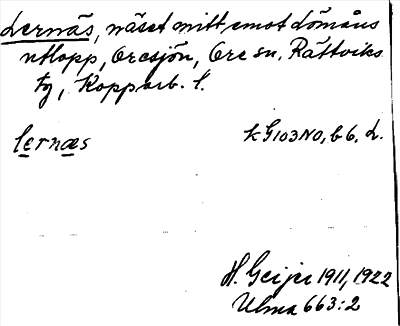 Lernäs, näset mitt emot Dömåns
utlopp, Oresjön, Ore sn, Rättviks
tg, Kopparb. l.
lernæs kG103NO, b6, L.
H. Geijer 1911, 1922
Ulma 663:2